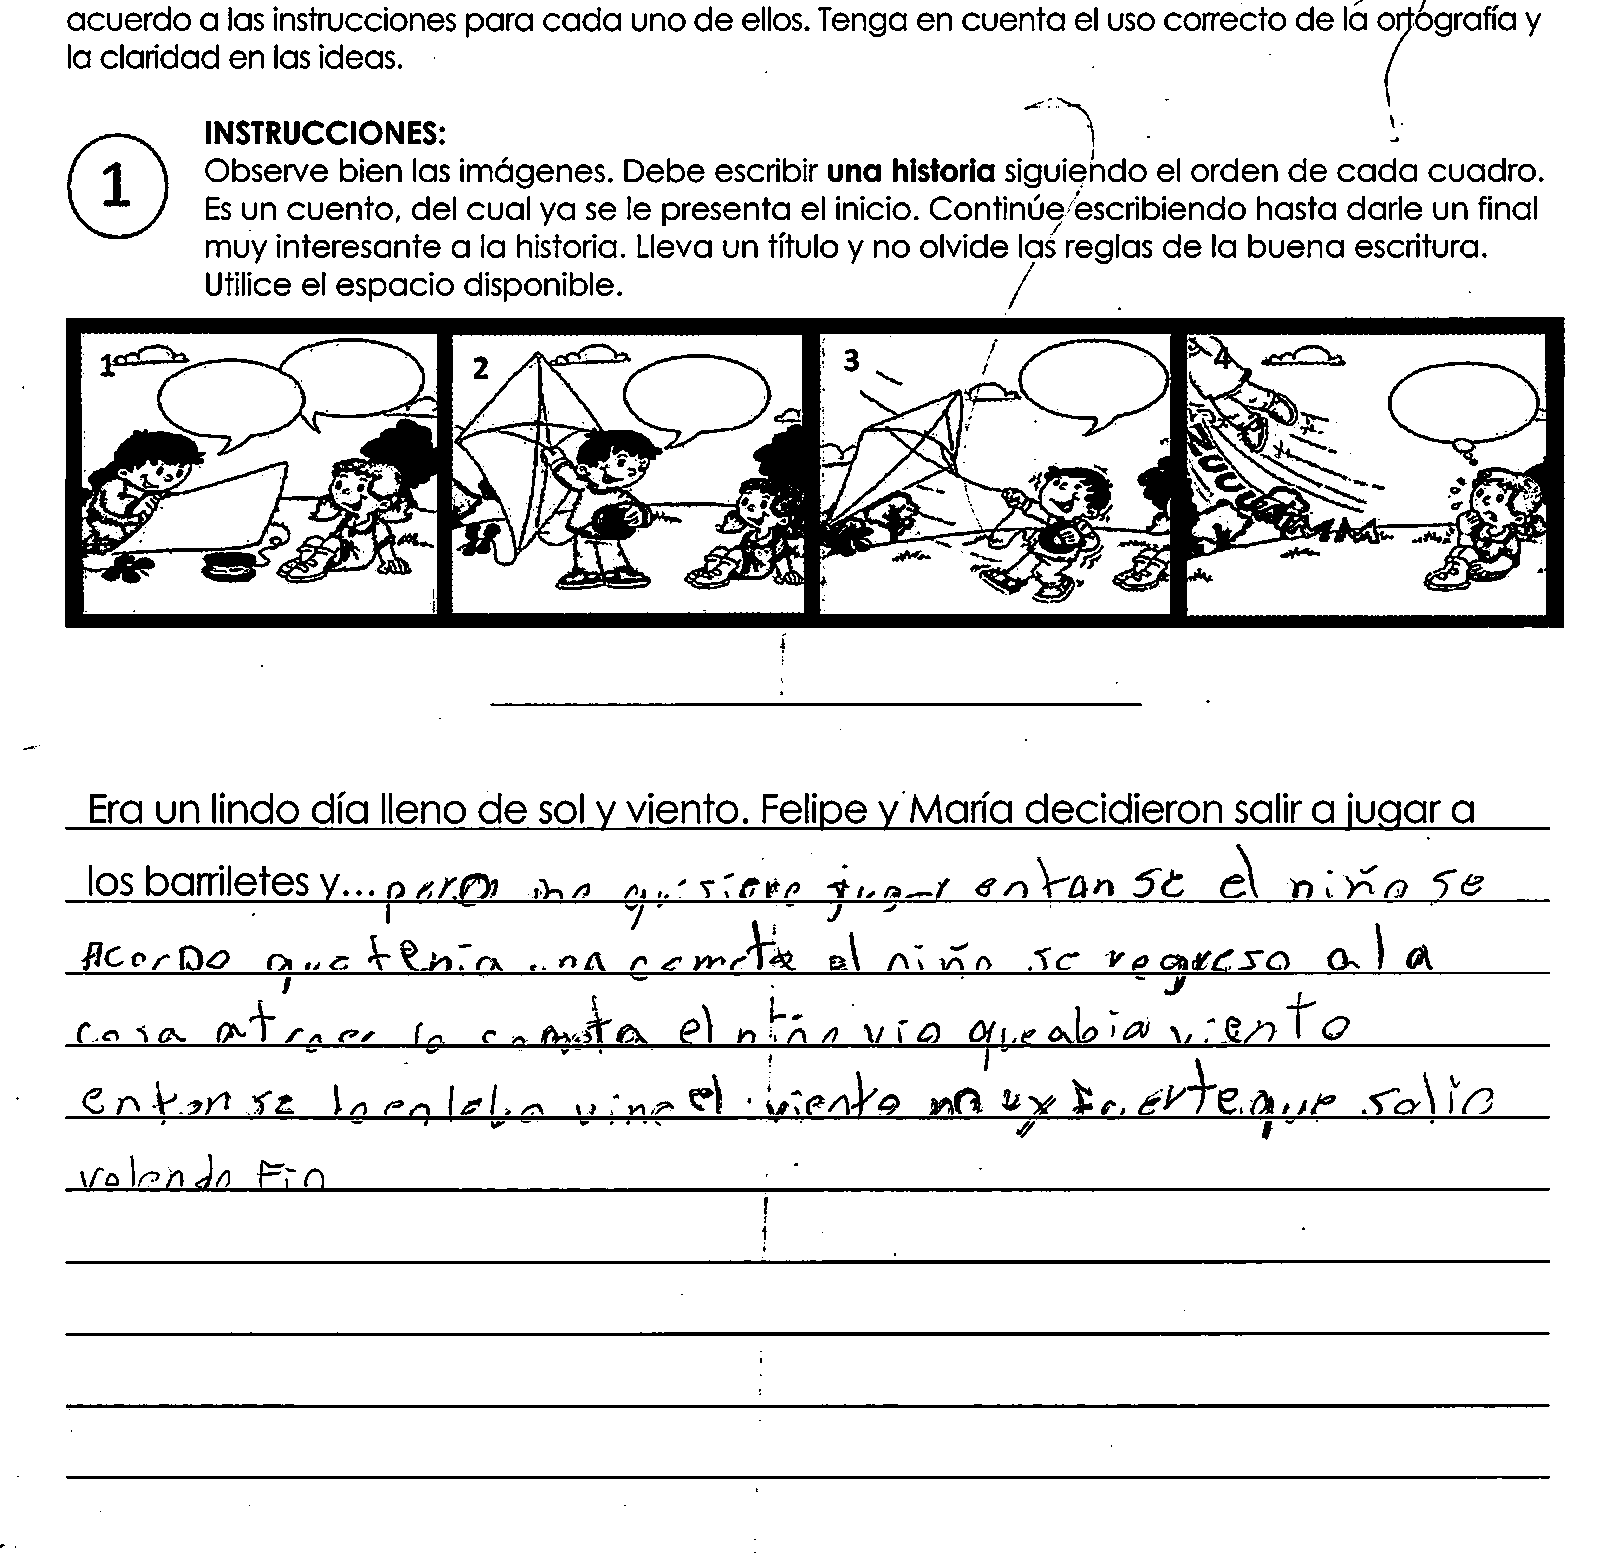 acuerdo a las instrucciones para cada uno de ellos. Tenga en cuenta el uso correcto de la ortografía y
la claridad en las ideas.
1
INSTRUCCIONES:
Observe bien las imágenes. Debe escribir una historia siguiendo el orden de cada cuadro.
Es un cuento, del cual ya se le presenta el inicio. Continúe escribiendo hasta darle un final
muy interesante a la historia. Lleva un título y no olvide las reglas de la buena escritura.
Utilice el espacio disponible.
1 2 3 4
ZUUUUUM
Era un lindo día lleno de sol y viento. Felipe y María decidieron salir a jugar a
los barriletes y... jugar entonse el niño se
Acordo que tenia una cometa el niño se regreso a la
casa atraer la cometa el niño vio que abia viento
entonse vino el viento muy fuerte que salio
volando Fin